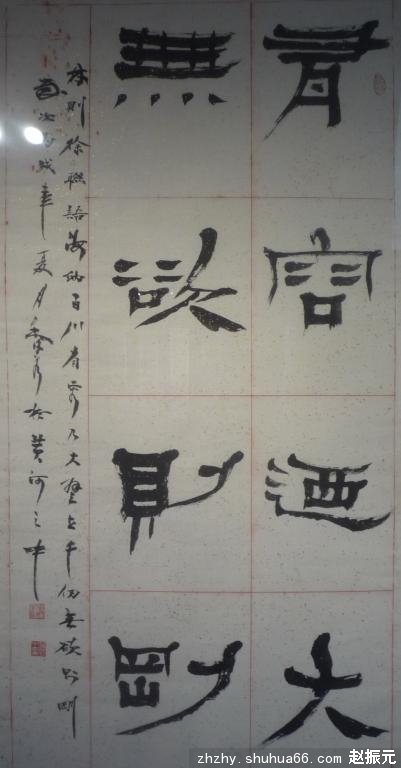 有容迺大
無欲則剛
林則徐聯語海納百川有容乃大壁立千仞無欲則剛
歲次丙戌年夏月於黄河之畔
zhzhy.shuhua66.com 赵振元